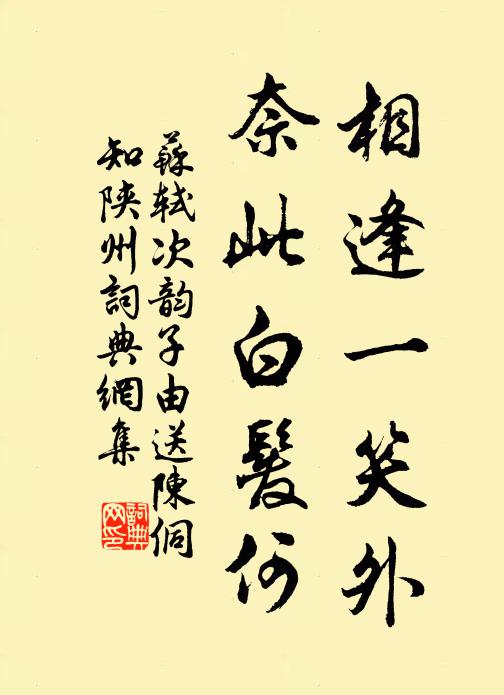 相逢一笑外
奈此白髮何
蘇軾次韵子由送陳侗
知陝州詞典網集
詞典
网印